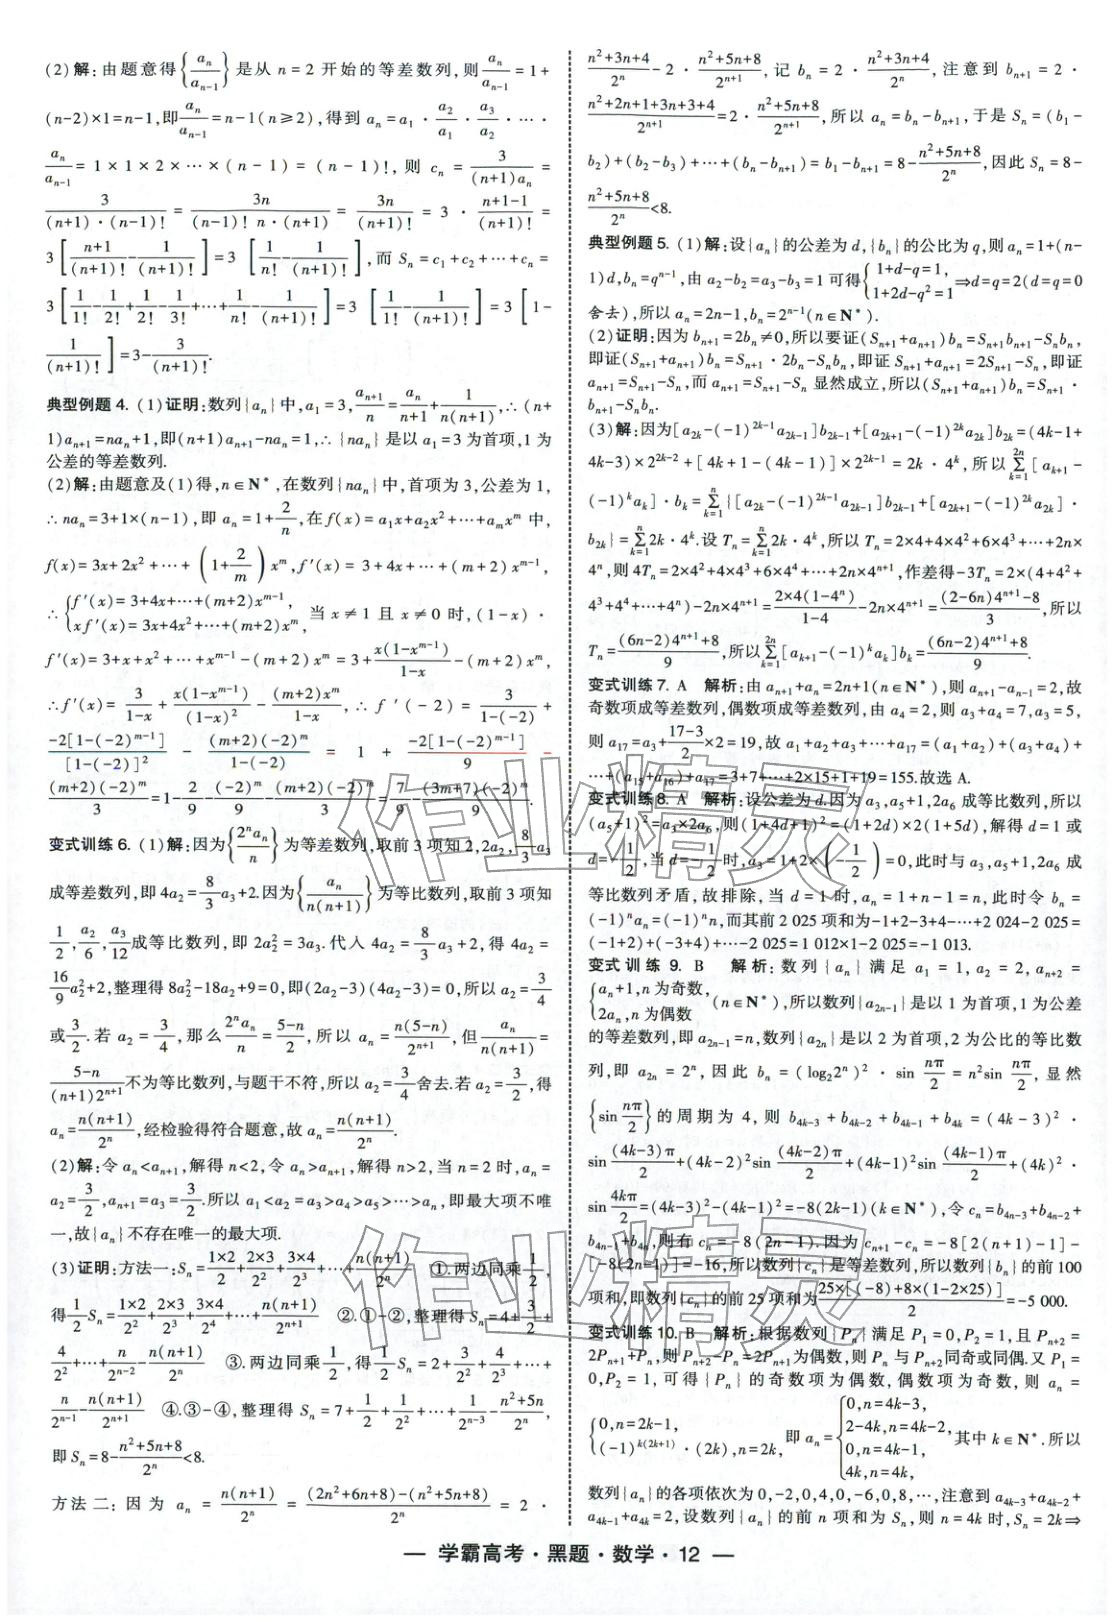 (2)解:由题意得{a_n/a_{n-1}}是从 n=2 开始的等差数列,则a_n/a_{n-1}=1+
(n-2)×1=n-1,即a_n/a_{n-1}=n-1(n≥2),得到 a_n=a_1·a_2/a_1·a_3/a_2·…·
a_n/a_{n-1}=1×1×2×…×(n-1)=(n-1)!,则 c_n=3/((n+1)a_n)=
3/((n+1)·(n-1)!)=3n/((n-1)! n·(n+1))=3n/(n+1)!=3·(n+1-1)/(n+1)!=
3[(n+1)/(n+1)!-1/(n+1)!]=3[1/n!-1/(n+1)!],而 S_n=c_1+c_2+…+c_n=
3[1/1!-1/2!+1/2!-1/3!+…+1/n!-1/(n+1)!]=3[1/1!-1/(n+1)!]=3[1-
1/(n+1)!]=3-3/(n+1)!.
典型例题4. (1)证明:数列{a_n}中,a_1=3,a_{n+1}/n=a_n/(n+1)+1/(n(n+1)),∴(n+
1)a_{n+1}=na_n+1,即(n+1)a_{n+1}-na_n=1,∴{na_n}是以 a_1=3 为首项,1 为
公差的等差数列.
(2)解:由题意及(1)得,n∈N*,在数列{na_n}中,首项为 3,公差为 1,
∴na_n=3+1×(n-1),即 a_n=1+2/n,在 f(x)=a_1x+a_2x^2+…+a_mx^m 中,
f(x)=3x+2x^2+…+(1+2/m)x^m,f'(x)=3+4x+…+(m+2)x^{m-1},
∴{f'(x)=3+4x+…+(m+2)x^{m-1}, xf'(x)=3x+4x^2+…+(m+2)x^m, 当 x≠1 且 x≠0 时,(1-x)·
f'(x)=3+x+x^2+…+x^{m-1}-(m+2)x^m=3+x(1-x^{m-1})/(1-x)-(m+2)x^m,
∴f'(x)=3/(1-x)+x(1-x^{m-1})/(1-x)^2-(m+2)x^m/(1-x),∴f'(-2)=3/(1-(-2))+
-2[1-(-2)^{m-1}]/[1-(-2)]^2-(m+2)(-2)^m/(1-(-2))=1+-2[1-(-2)^{m-1}]/9-
(m+2)(-2)^m/3=1-2/9-(-2)^m/9-(m+2)(-2)^m/3=7/9-(3m+7)(-2)^m/9.
变式训练6. (1)解:因为{2^n a_n/n}为等差数列,取前 3 项知 2,2a_2,8/3 a_3
成等差数列,即 4a_2=8/3 a_3+2.因为{a_n/(n(n+1))}为等比数列,取前 3 项知
1/2,a_2/6,a_3/12成等比数列,即 2a_2^2=3a_3.代入 4a_2=8/3 a_3+2,得 4a_2=
16/9 a_2^2+2,整理得 8a_2^2-18a_2+9=0,即(2a_2-3)(4a_2-3)=0,所以 a_2=3/4
或3/2.若 a_2=3/4,那么2^n a_n/n=(5-n)/2,所以 a_n=n(5-n)/2^{n+1},但a_n/(n(n+1))=
(5-n)/((n+1)2^{n+1})不为等比数列,与题干不符,所以 a_2=3/4舍去.若 a_2=3/2,得
a_n=n(n+1)/2^n,经检验得符合题意,故 a_n=n(n+1)/2^n.
(2)解:令 a_n<a_{n+1},解得 n<2,令 a_n>a_{n+1},解得 n>2,当 n=2 时,a_n=
a_2=3/2,a_{n+1}=a_3=3/2.所以 a_1<a_2=a_3>a_4>a_5>…>a_n,即最大项不唯
一,故{a_n}不存在唯一的最大项.
(3)证明:方法一:S_n=1×2/2+2×3/2^2+3×4/2^3+…+n(n+1)/2^n ①.两边同乘1/2,
得1/2 S_n=1×2/2^2+2×3/2^3+3×4/2^4+…+n(n+1)/2^{n+1} ②.①-②,整理得 S_n=2+4/2+
4/2^2+…+n/2^{n-2}-n(n+1)/2^n ③.两边同乘1/2,得1/2 S_n=2+3/2+4/2^2+…+
n/2^{n-1}-n(n+1)/2^{n+1} ④.③-④,整理得 S_n=7+1/2+1/2^2+…+1/2^{n-3}-(n^2+5n+2)/2^n,
即 S_n=8-(n^2+5n+8)/2^n<8.
方法二:因为 a_n=n(n+1)/2^n=((2n^2+6n+8)-(n^2+5n+8))/2^n=2·
(n^2+3n+4)/2^n-2·(n^2+5n+8)/2^{n+1},记 b_n=2·(n^2+3n+4)/2^n,注意到 b_{n+1}=2·
(n^2+2n+1+3n+3+4)/2^{n+1}=2·(n^2+5n+8)/2^{n+1},所以 a_n=b_n-b_{n+1},于是 S_n=(b_1-
b_2)+(b_2-b_3)+…+(b_n-b_{n+1})=b_1-b_{n+1}=8-(n^2+5n+8)/2^n,因此 S_n=8-
(n^2+5n+8)/2^n<8.
典型例题5. (1)解:设{a_n}的公差为 d,{b_n}的公比为 q,则 a_n=1+(n-
1)d,b_n=q^{n-1},由 a_2-b_2=a_3-b_3=1 可得{1+d-q=1, 1+2d-q^2=1⇒d=q=2(d=q=0
舍去),所以 a_n=2n-1,b_n=2^{n-1}(n∈N*).
(2)证明:因为 b_{n+1}=2b_n≠0,所以要证(S_{n+1}+a_{n+1})b_n=S_{n+1}b_{n+1}-S_nb_n,
即证(S_{n+1}+a_{n+1})b_n=S_{n+1}·2b_n-S_nb_n,即证 S_{n+1}+a_{n+1}=2S_{n+1}-S_n,即证
a_{n+1}=S_{n+1}-S_n,而 a_{n+1}=S_{n+1}-S_n 显然成立,所以(S_{n+1}+a_{n+1})b_n=S_{n+1}·
b_{n+1}-S_nb_n.
(3)解:因为[a_{2k}-(-1)^{2k-1}a_{2k-1}]b_{2k-1}+[a_{2k+1}-(-1)^{2k}a_{2k}]b_{2k}=(4k-1+
4k-3)×2^{2k-2}+[4k+1-(4k-1)]×2^{2k-1}=2k·4^k,所以∑_{k=1}^{2n}[a_{k+1}-
(-1)^k a_k]·b_k=∑_{k=1}^{n}{[a_{2k}-(-1)^{2k-1}a_{2k-1}]b_{2k-1}+[a_{2k+1}-(-1)^{2k}a_{2k}]·
b_{2k}}=∑_{k=1}^{n}2k·4^k.设 T_n=∑_{k=1}^{n}2k·4^k,所以 T_n=2×4+4×4^2+6×4^3+…+2n×
4^n,则 4T_n=2×4^2+4×4^3+6×4^4+…+2n×4^{n+1},作差得-3T_n=2×(4+4^2+
4^3+4^4+…+4^n)-2n×4^{n+1}=2×4(1-4^n)/(1-4)-2n×4^{n+1}=((2-6n)4^{n+1}-8)/3,所以
T_n=((6n-2)4^{n+1}+8)/9,所以∑_{k=1}^{2n}[a_{k+1}-(-1)^k a_k]b_k=((6n-2)4^{n+1}+8)/9.
变式训练7. A 解析:由 a_{n+1}+a_n=2n+1(n∈N*),则 a_{n+1}-a_{n-1}=2,故
奇数项成等差数列,偶数项成等差数列,由 a_4=2,则 a_3+a_4=7,a_3=5,
则 a_17=a_3+(17-3)/2×2=19,故 a_1+a_2+a_3+…+a_17=(a_1+a_2)+(a_3+a_4)+
…+(a_15+a_16)+a_17=3+7+…+2×15+1+19=155.故选 A.
变式训练8. A 解析:设公差为 d.因为 a_3,a_5+1,2a_6 成等比数列,所以
(a_5+1)^2=a_3×2a_6,则(1+4d+1)^2=(1+2d)×2(1+5d),解得 d=1 或
d=-1/2,当 d=-1/2时,a_3=1+2×(-1/2)=0,此时与 a_3,a_5+1,2a_6 成
等比数列矛盾,故排除,当 d=1 时,a_n=1+n-1=n,此时令 b_n=
(-1)^n a_n=(-1)^n n,而其前 2 025 项和为-1+2-3+4-…+2 024-2 025=
(-1+2)+(-3+4)+…-2 025=1 012×1-2 025=-1 013.
变式训练9. B 解析:数列{a_n}满足 a_1=1,a_2=2,a_{n+2}=
{a_n+1,n 为奇数, 2a_n,n 为偶数(n∈N*),所以数列{a_{2n-1}}是以 1 为首项,1 为公差
的等差数列,即 a_{2n-1}=n,数列{a_{2n}}是以 2 为首项,2 为公比的等比数
列,即 a_{2n}=2^n,因此 b_n=(log_2 2^n)^2·sin nπ/2=n^2 sin nπ/2,显然
{sin nπ/2}的周期为 4,则 b_{4k-3}+b_{4k-2}+b_{4k-1}+b_{4k}=(4k-3)^2·
sin (4k-3)π/2+(4k-2)^2 sin (4k-2)π/2+(4k-1)^2 sin (4k-1)π/2+(4k)^2·
sin 4kπ/2=(4k-3)^2-(4k-1)^2=-8(2k-1)(k∈N*),令 c_n=b_{4n-3}+b_{4n-2}+
b_{4n-1}+b_{4n},则有 c_n=-8(2n-1).因为 c_{n+1}-c_n=-8[2(n+1)-1]-
[-8(2n-1)]=-16,所以数列{c_n}是等差数列,所以数列{b_n}的前 100
项和,即数列{c_n}的前 25 项和为25×[(-8)+8×(1-2×25)]/2=-5 000.
变式训练10. B 解析:根据数列{P_n}满足 P_1=0,P_2=1,且 P_{n+2}=
2P_{n+1}+P_n,则 P_{n+2}-P_n=2P_{n+1}为偶数,则 P_n 与 P_{n+2}同奇或同偶.又 P_1=
0,P_2=1,可得{P_n}的奇数项为偶数,偶数项为奇数,则 a_n=
{0,n=2k-1, (-1)^{k(2k+1)}·(2k),n=2k, 即 a_n={0,n=4k-3, 2-4k,n=4k-2, 0,n=4k-1, 4k,n=4k, 其中 k∈N*.所以
数列{a_n}的各项依次为 0,-2,0,4,0,-6,0,8,…,注意到 a_{4k-3}+a_{4k-2}+
a_{4k-1}+a_{4k}=2,设数列{a_n}的前 n 项和为 S_n,则 n=4k 时,S_n=2k⇒
— 学霸高考·黑题·数学·12 —
作业精灵
作业精灵